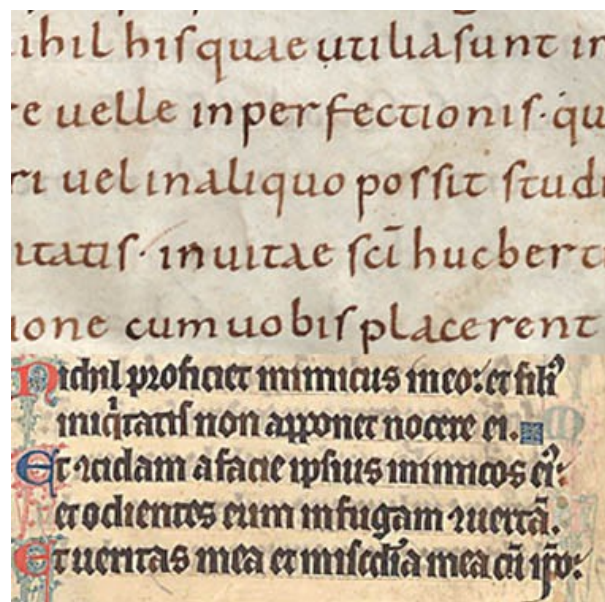 ihil hiſ quae utilia ſunt in
re uelle inperfectioniſ · qu
ri uel in aliquo poſſit ſtudi
itatiſ · in uitae ſci̅ hucberti
ione cum uobiſ placerent
Nichil proficiet inimicus in eo: et fili᾿
iniq̓tatiſ non apponet nocere ei.
Et ꝯcidam a facie ipſius inimicos ei᾿:
et odientes eum in fugam ꝯuertā.
Et ueritas mea et miſcdīa mea cū ip̄o: